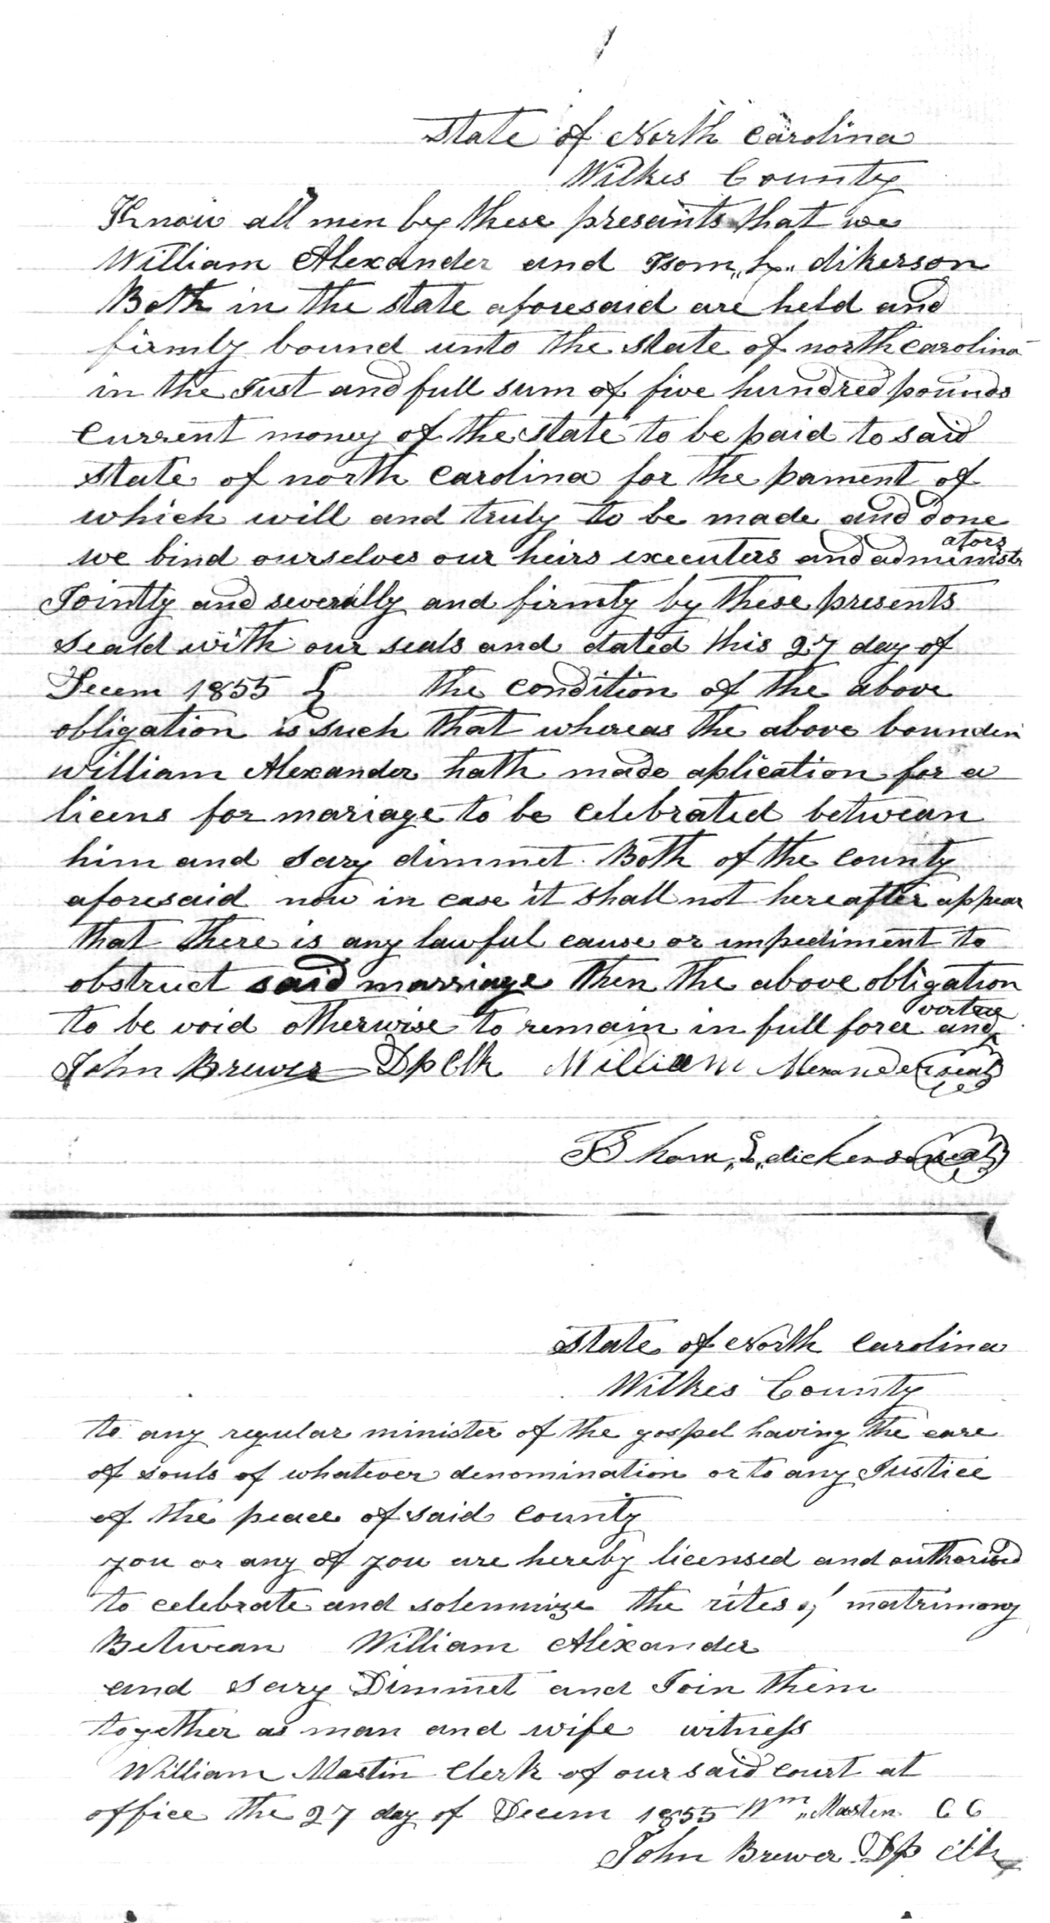 State of North Carolina
Wilkes County
Know all men by these presants that we
William Alexander and Isom "L" dikerson
Both in the state aforesaid are held and
firmly bound unto the state of north carolina
in the Just and full sum of five hundred pounds
Current money of the state to be paid to said
state of north carolina for the pament of
which will and truly to be made and done
we bind ourselves our heirs executers and administrators
Jointly and severally and firmly by these presents
seald with our seals and dated this 27 day of
Decem 1855 the condition of the above
obligation is such that whereas the above bounden
william Alexander hath made aplication for a
licens for mariage to be celebrated betwean
him and Sary dimmet Both of the county
aforesaid now in case it shall not hereafter appear
that there is any lawful cause or impediment to
obstruct said marriage then the above obligation
to be void otherwise to remain in full force and virtue
John Brewer Dp Clk William Alexander seal
Isham "L" dickenson seal
State of North Carolina
Wilkes County
to any regular minister of the gospel having the care
of souls of whatever denomination or to any Justice
of the peace of said County
you or any of you are hereby licensed and authorised
to celebrate and solemnize the rites of matrimony
Betwean William Alexander
and Sary Dimmet and Join them
together as man and wife witness
William Mastin Clerk of our said court at
office the 27 day of Decem 1855 Wm Masten C C
John Brewer Dp Clk